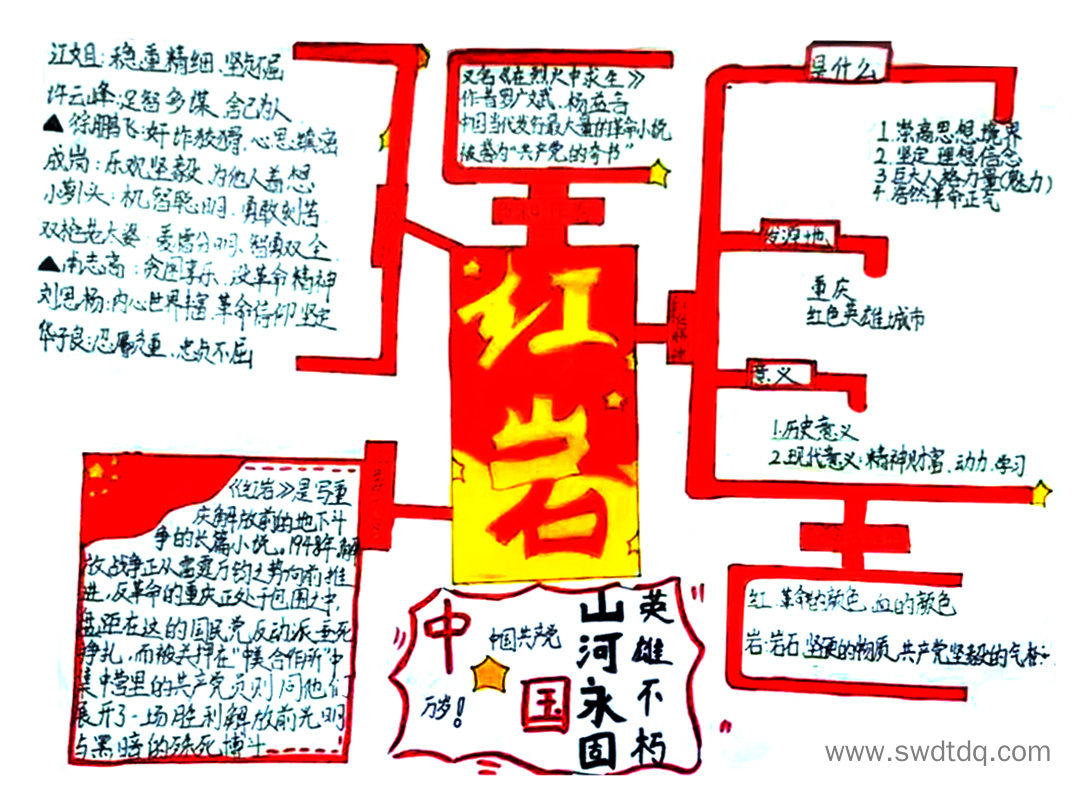 江姐:稳重精细、坚贞不屈
许云峰:足智多谋、舍己为人
▲徐鹏飞:奸诈狡猾、心思缜密
成岗:乐观坚毅、为他人着想
小萝头:机智聪明、勇敢刻苦
双枪老太婆:爱憎分明、智勇双全
▲甫志高:贪图享乐、没革命精神
刘思扬:内心世界丰富、革命信仰坚定
华子良:忍辱负重、忠贞不屈
又名《在烈火中永生》
作者罗广斌、杨益言
中国当代发行最大量的革命小说
被誉为“共产党的奇书”
红岩
是什么
1.崇高思想境界
2.坚定理想信念
3.巨大人格力量(魅力)
4.浩然革命正气
发源地
重庆
红色英雄城市
意义
1.历史意义
2.现代意义:精神财富、动力、学习
红:革命的颜色、血的颜色
岩:岩石 坚硬的物质、共产党坚毅的气
《红岩》是写重
庆解放前的地下斗
争的长篇小说。1948年,解
放战争正从雷霆万钧之势向前推
进,反革命的重庆正处于包围之中,
盘踞在这的国民党反动派垂死
挣扎,而被关押在“中美合作所”中
集中营里的共产党员则同他们
展开了一场胜利解放前光明
与黑暗的殊死博斗
中国
中国共产党
万岁!
山河永固
英雄不朽
www.swdtdq.com